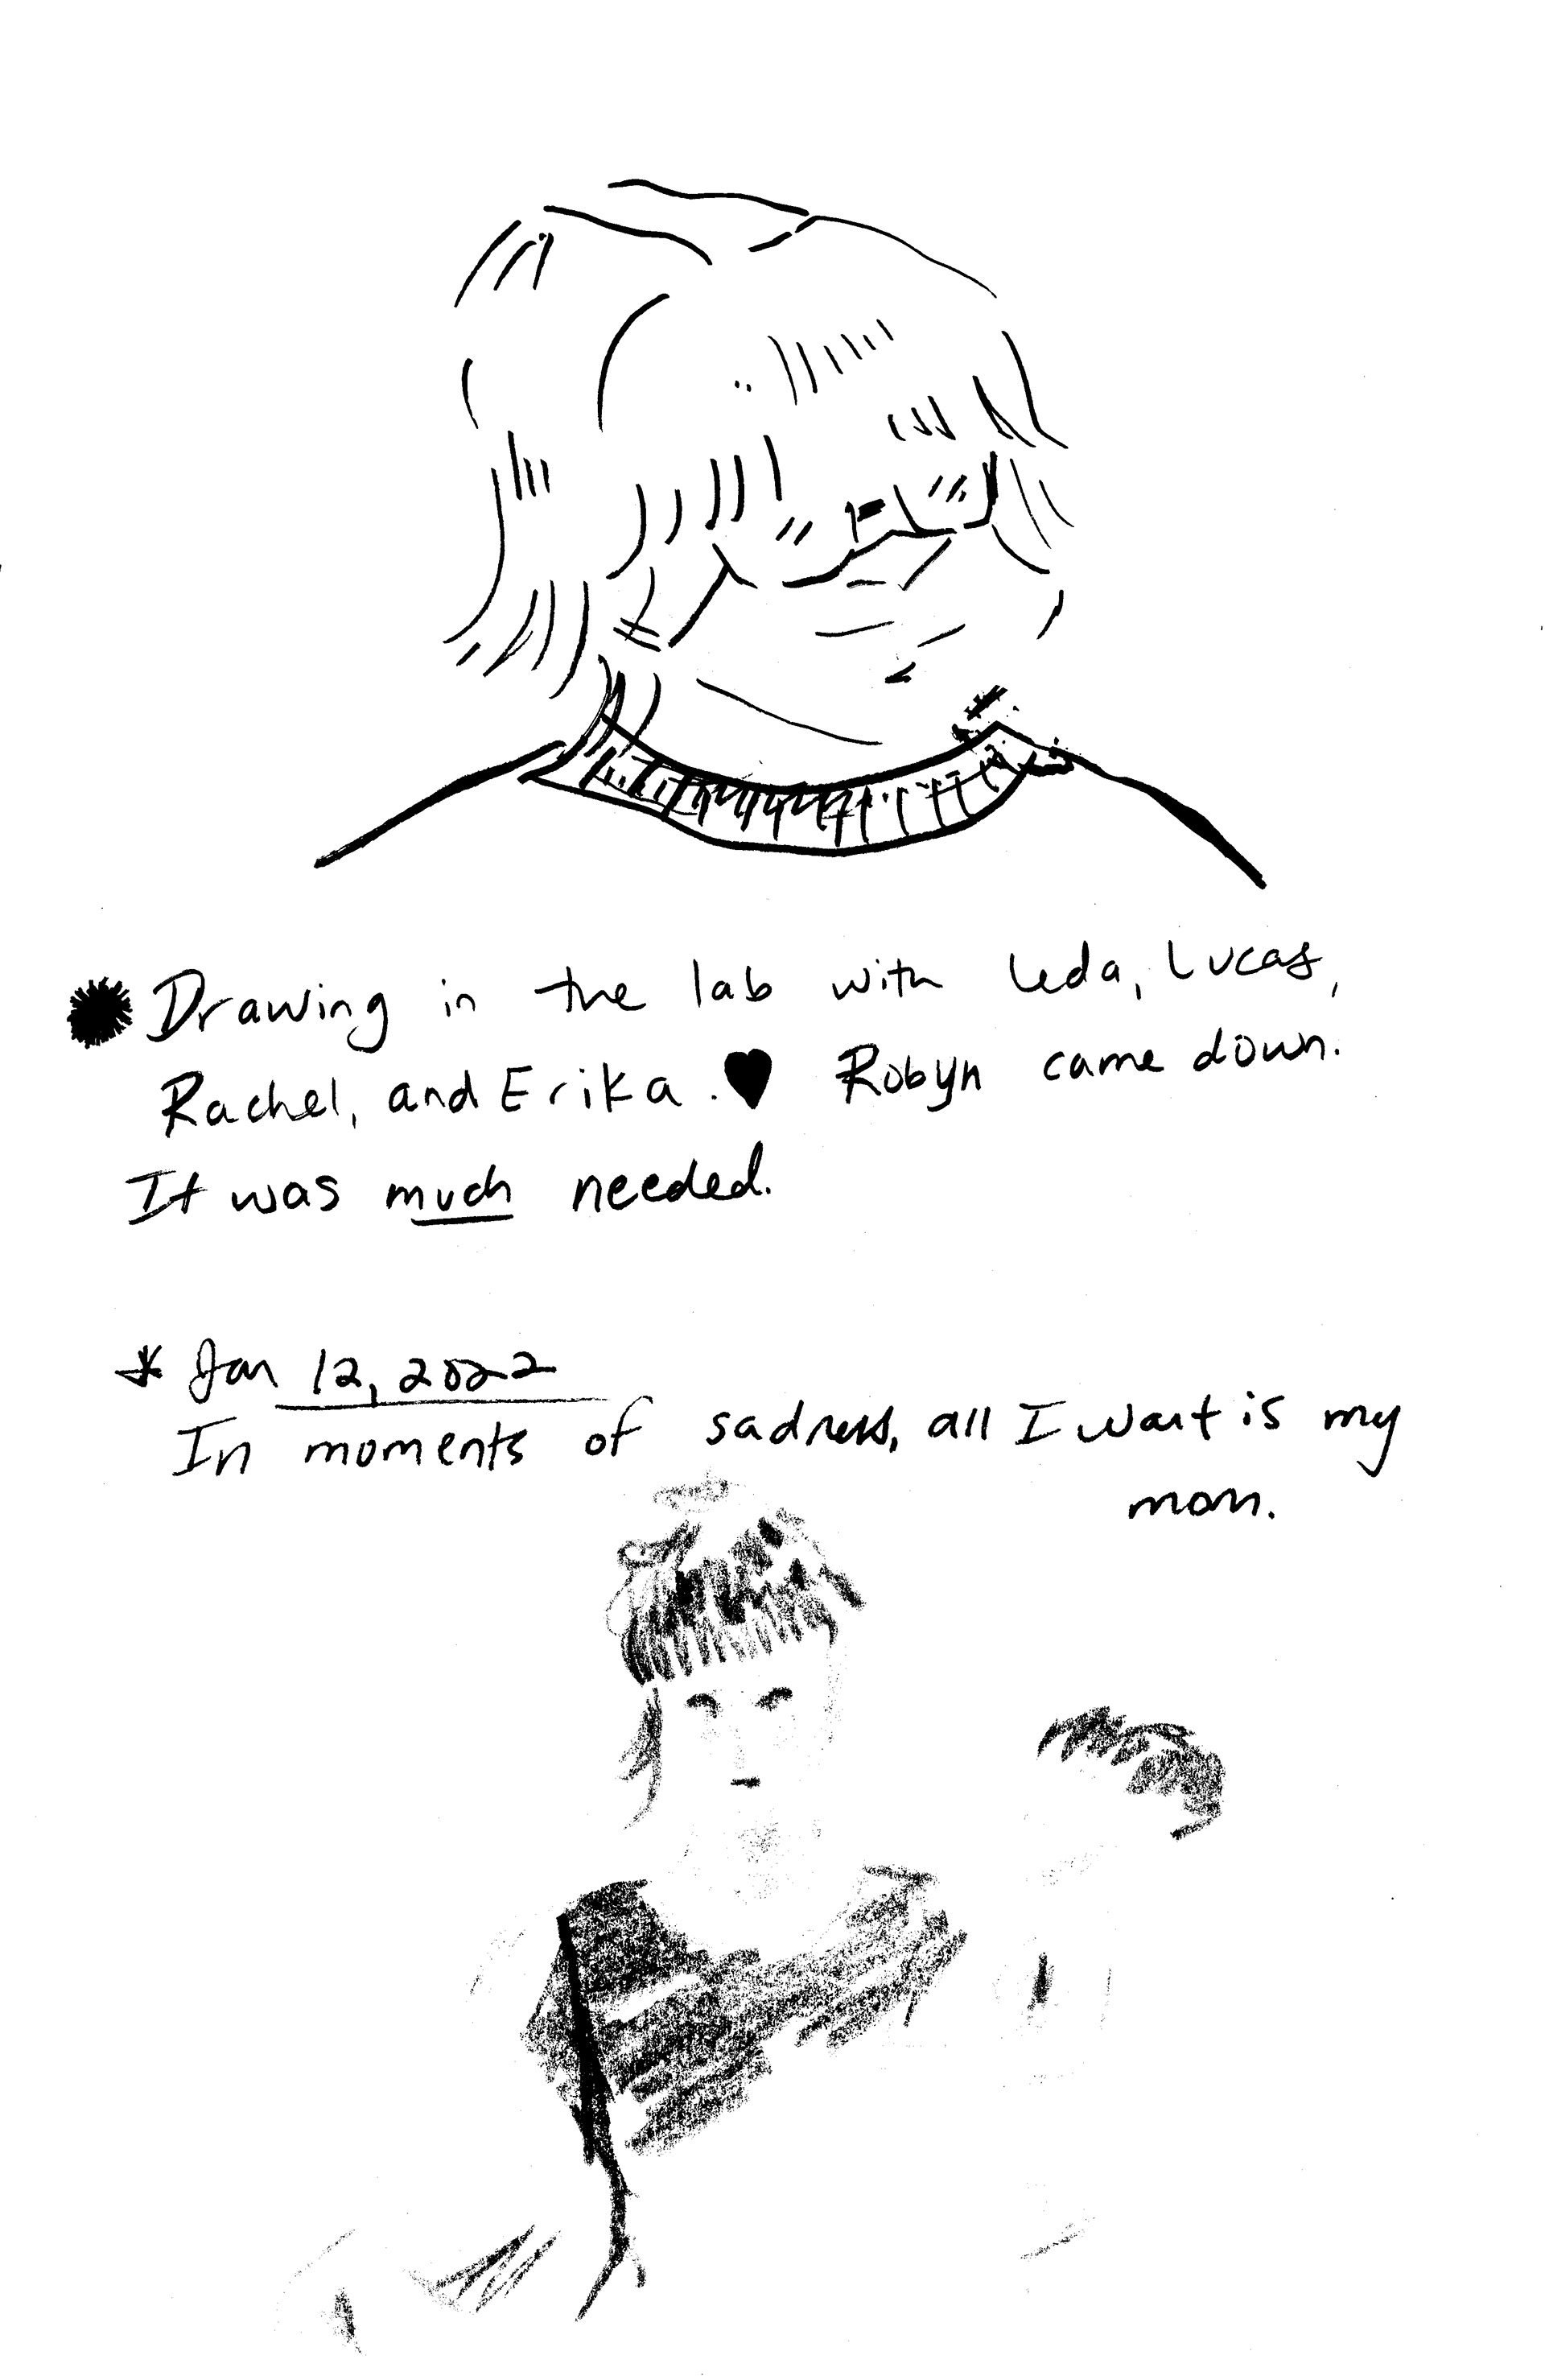 Drawing in the lab with Leda, Lucas,
Rachel, and Erika. ♥ Robyn came down.
It was much needed.
* Jan 12, 2022
In moments of sadness, all I want is my
mom.